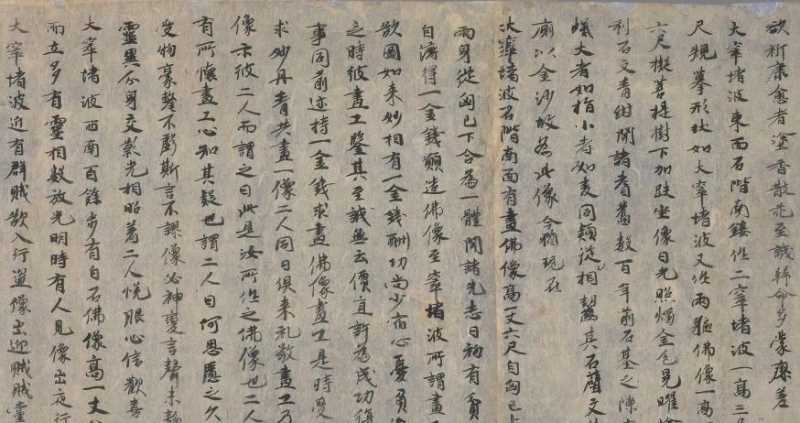 欲祈康愈者塗香散花至誠歸命多蒙瘳差
大窣堵波東面石階南鏤作二窣堵波一高三
尺規摹形狀如大窣堵波又作兩軀佛像一高
六尺擬菩提樹下加趺坐像日光照燭金色晃曜
利石文青紺聞諸耆舊數百年前石基之隙
蟻大者如指小者如麦同類從相齧其石壁文
廁以金沙作為此像今猶現在
大窣堵波石階南面有畫佛像高一丈六尺自匈已上
兩身從匈已下合為一體聞諸先志曰初有貧
自濟得一金錢願造佛像至窣堵波所謂畫工
欲圖如来妙相有一金錢酬功尚少宿心憂負
之時彼畫工鑒其至誠無云價直許為成功復
事同前迹持一金錢求畫佛像畫工是時受
求妙丹青共畫一像二人同日俱来礼敬畫工乃
像示彼二人而謂之曰此是汝所作之佛像也二人
有所懷畫工心知其疑也謂二人曰何思慮之久
受物豪釐不虧斯言不謬像必神變言聲未
靈異分身交影光相照著二人悅服心信歡喜
大窣堵波西南百餘步有白石佛像高一丈
而立多有靈相數放光明時有人見像出夜行
大窣堵波近有群賊欲入行盜像出迎賊賊黨